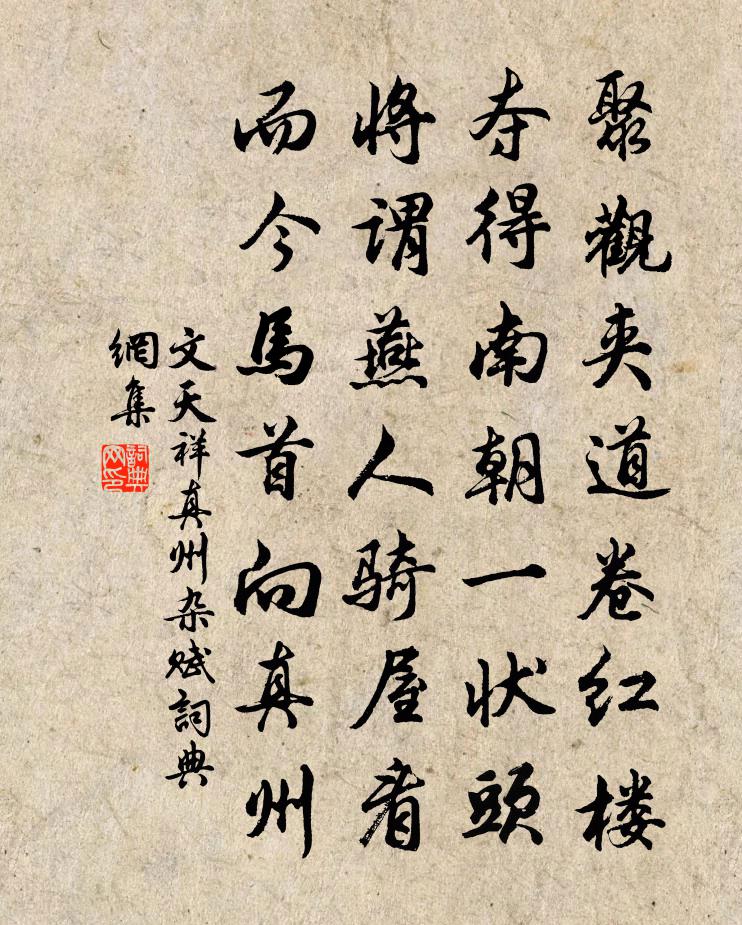 聚觀夹道卷红楼
夺得南朝一状頭
将谓燕人骑屋看
而今馬首向真州
文天祥真州杂赋詞典
網集
詞典
网印